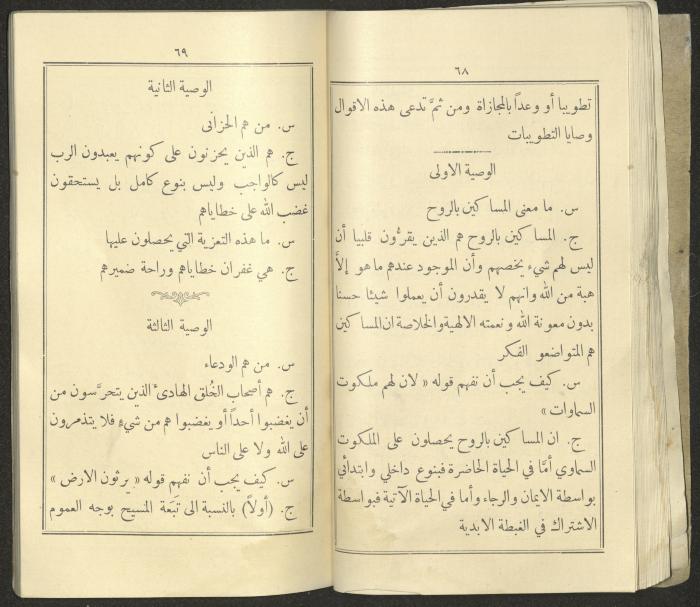 ٦٨
تطويبا أو وعداً بالمجازاة ومن ثمَّ تدعى هذه الاقوال
وصايا التطويبات
الوصية الاولى
س. ما معنى المساكين بالروح
ج. المساكين بالروح هم الذين يقرُّون قلبيا أن
ليس لهم شيء يخصهم وأن الموجود عندهم ما هو إلاَّ
هبة من الله وانهم لا يقدرون أن يعملوا شيئا حسنا
بدون معونة الله ونعمته الالهية والخلاصة ان المساكين
هم المتواضعو الفكر
س. كيف يجب أن نفهم قوله « لان لهم ملكوت
السماوات »
ج. ان المساكين بالروح يحصلون على الملكوت
السماوي أمَّا في الحياة الحاضرة فبنوع داخلي وابتدائي
بواسطة الايمان والرجاء وأما في الحياة الآتية فبواسطة
الاشتراك في الغبطة الابدية
٦٩
الوصية الثانية
س. من هم الحزانى
ج. هم الذين يحزنون على كونهم يعبدون الرب
ليس كالواجب وليس بنوع كامل بل يستحقون
غضب الله على خطاياهم
س. ما هذه التعزية التي يحصلون عليها
ج. هي غفران خطاياهم وراحة ضميرهم
الوصية الثالثة
س. من هم الودعاء
ج. هم أصحاب الخُلق الهادئ الذين يتحرَّسون من
أن يغضبوا أحداً أو يغضبوا هم من شيءٍ فلا يتذمرون
على الله ولا على الناس
س. كيف يجب أن نفهم قوله « يرثون الارض »
ج. (أولاً) بالنسبة الى تَبَعة المسيح بوجه العموم